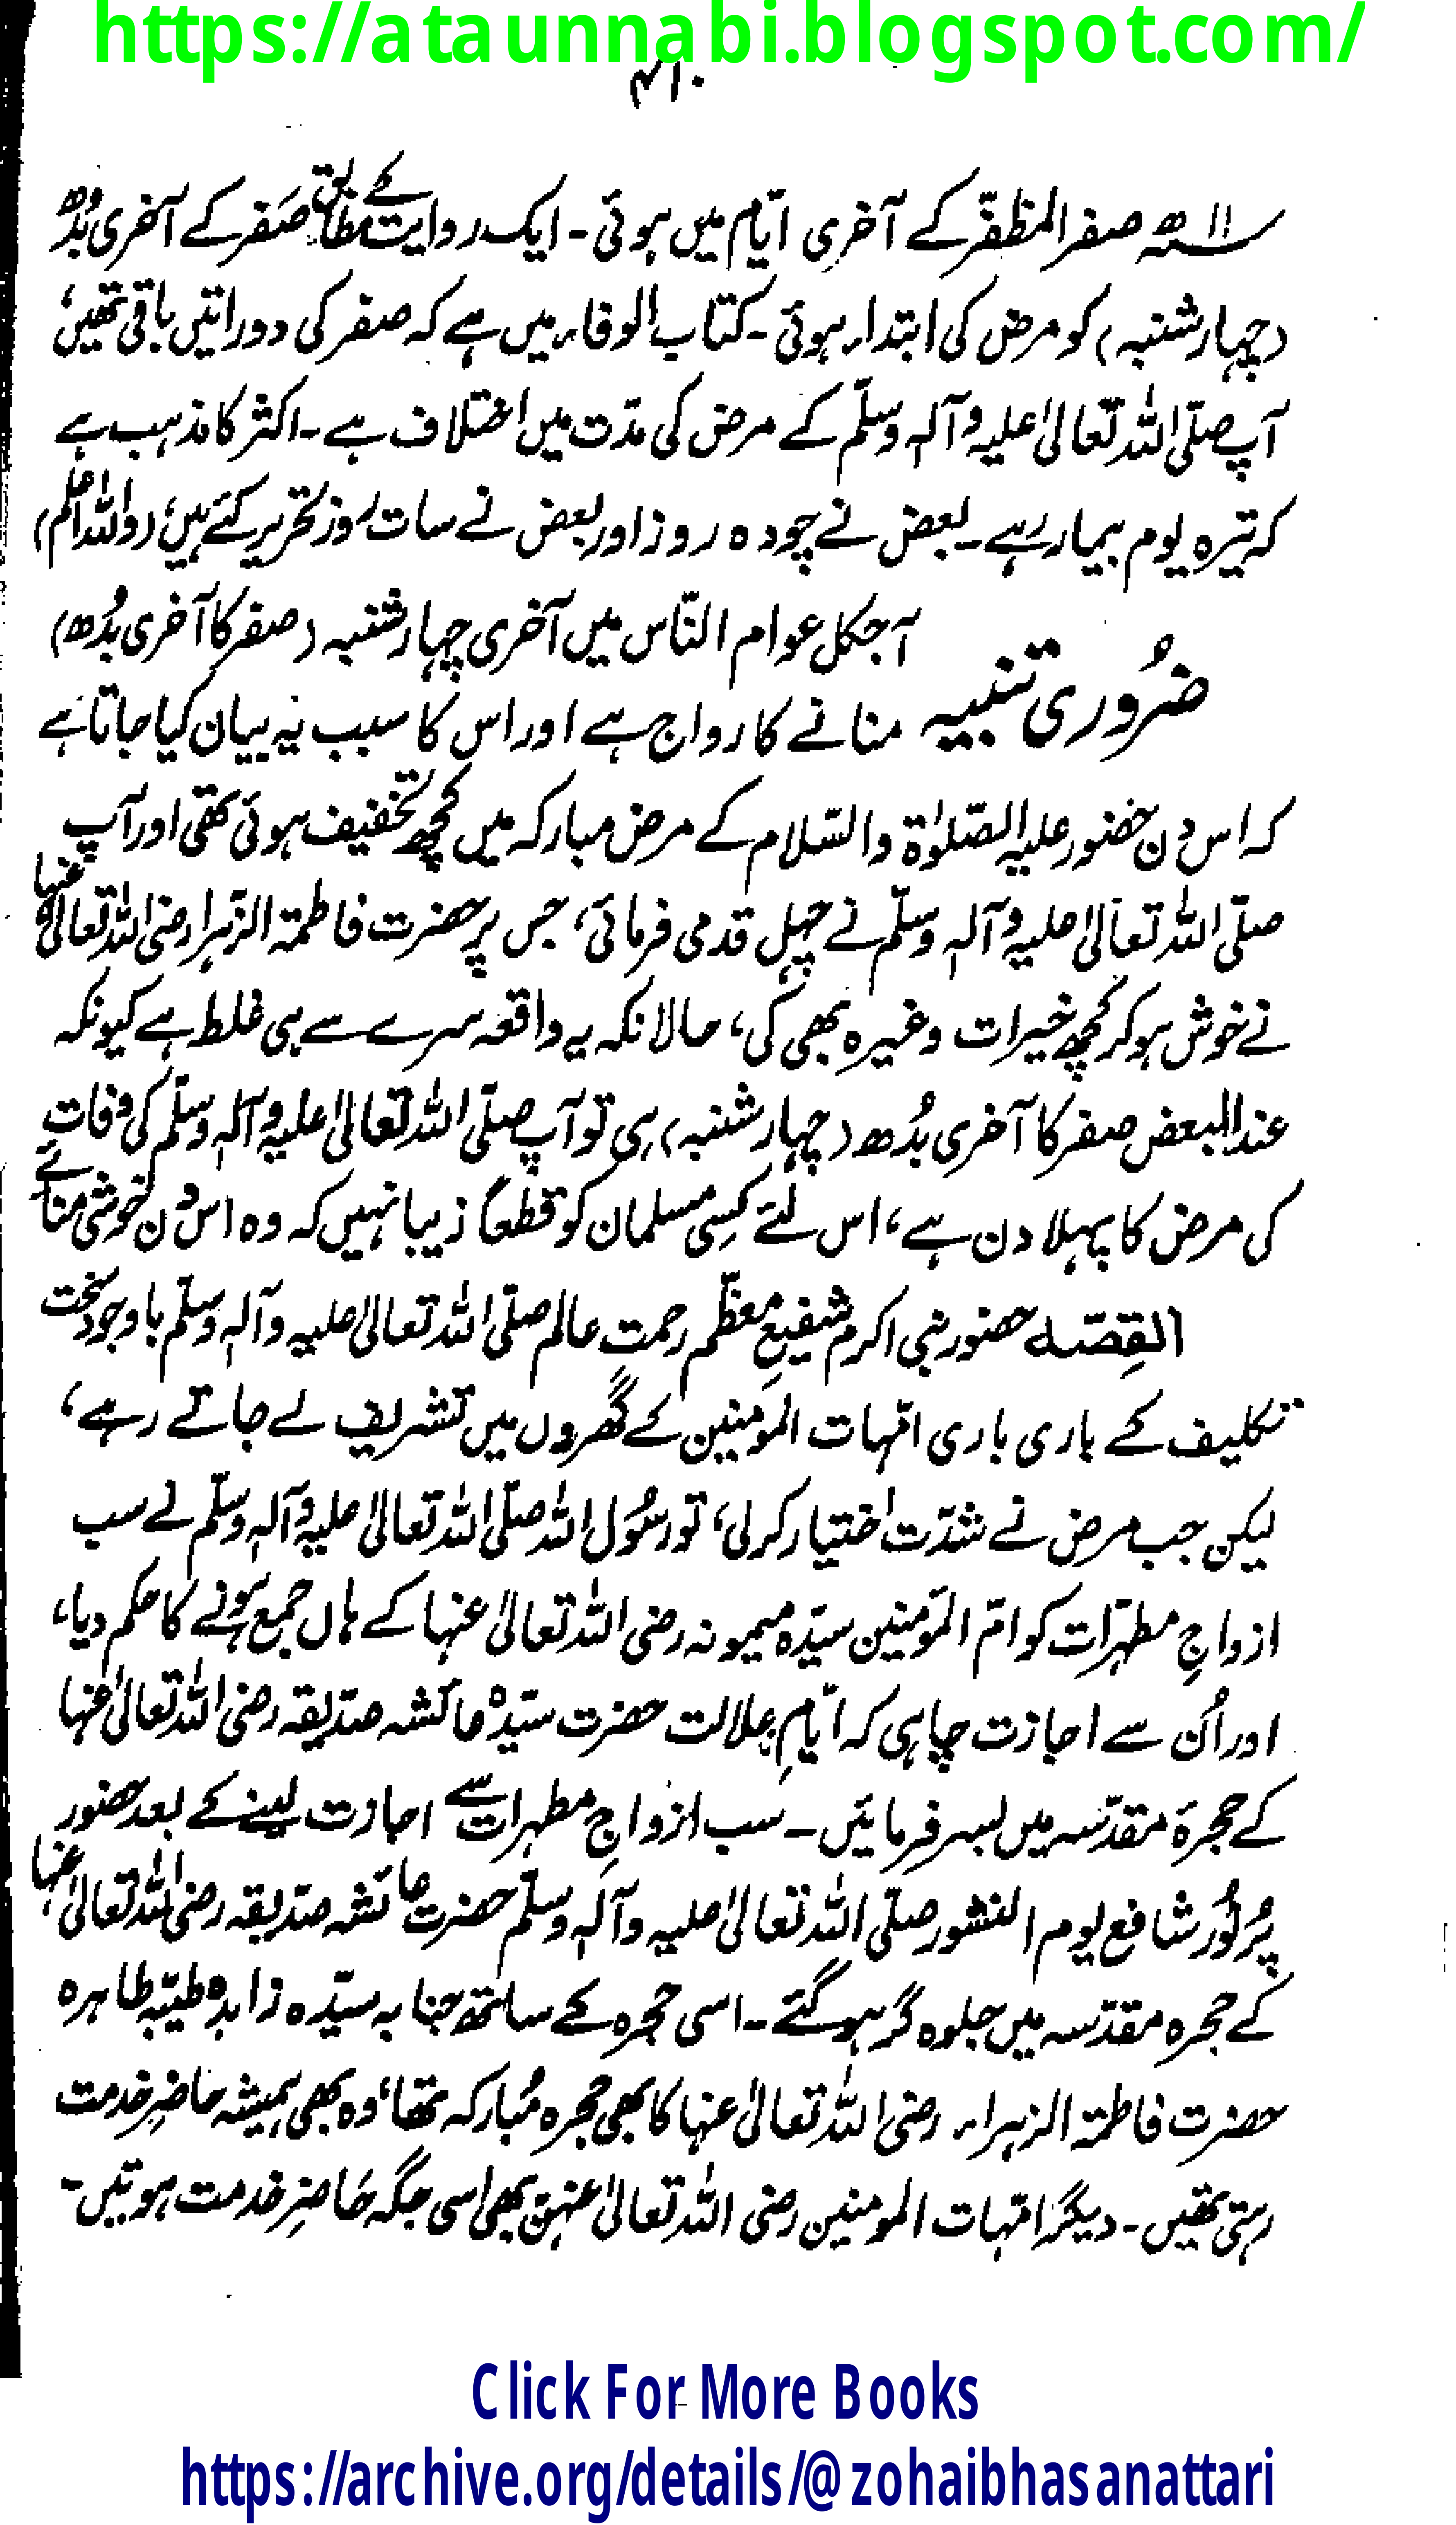 https://ataunnabi.blogspot.com/
۴۱۰
۱۱ھ صفر المظفّر کے آخری ایّام میں ہوئی۔ ایک روایت کے مطابق صَفر کے آخری بُدھ
(چہار شنبہ) کو مرض کی ابتداء ہوئی۔ کتاب الوفاء میں ہے کہ صفر کی دو راتیں باقی تھیں،
آپ صلّی اللہ تعالیٰ علیہ وآلہٖ وسلّم کے مرض کی مدّت میں اختلاف ہے۔ اکثر کا مذہب ہے
کہ تیرہ یوم بیمار رہے۔ بعض نے چودہ روز اور بعض نے سات روز تحریر کئے ہیں، (واللہ اعلم)
ضرُوری تنبیہ
آجکل عوام النّاس میں آخری چہار شنبہ (صفر کا آخری بُدھ)
منانے کا رواج ہے اور اس کا سبب یہ بیان کیا جاتا ہے
کہ اس دن حضور علیہ الصّلوٰۃ والسّلام کے مرض مبارکہ میں کچھ تخفیف ہوئی تھی اور آپ
صلّی اللہ تعالیٰ علیہ وآلہٖ وسلّم نے چہل قدمی فرمائی، جس پر حضرت فاطمۃ الزّہرا رضی اللہ تعالیٰ عنہا
نے خوش ہو کر کچھ خیرات وغیرہ بھی کی، حالانکہ یہ واقعہ سرے سے ہی غلط ہے کیونکہ
عند البعض صفر کا آخری بُدھ (چہار شنبہ) ہی تو آپ صلّی اللہ تعالیٰ علیہ وآلہٖ وسلّم کی وفات
کی مرض کا پہلا دن ہے، اس لئے کسی مسلمان کو قطعاً زیبا نہیں کہ وہ اس دن خوشی منائے
القِصّہ حضور نبی اکرم شفیعِ معظّم رحمت عالم صلّی اللہ تعالیٰ علیہ وآلہٖ وسلّم باوجود سخت
تکلیف کے باری باری امّہات المؤمنین کے گھروں میں تشریف لے جاتے رہے،
لیکن جب مرض نے شدّت اختیار کر لی، تو رسُول اللہ صلّی اللہ تعالیٰ علیہ وآلہٖ وسلّم نے سب
ازواجِ مطہرّات کو امّ المؤمنین سیّدہ میمونہ رضی اللہ تعالیٰ عنہا کے ہاں جمع ہونے کا حکم دیا،
اور اُن سے اجازت چاہی کہ ایّامِ علالت حضرت سیّدہ عائشہ صدّیقہ رضی اللہ تعالیٰ عنہا
کے حجرۃ مقدّسہ میں بسر فرمائیں۔ سب ازواجِ مطہرات سے اجازت لینے کے بعد حضور
پُر نُور شافع یوم النشور صلّی اللہ تعالیٰ علیہ وآلہٖ وسلّم حضرت عائشہ صدّیقہ رضی اللہ تعالیٰ عنہا
کے حجرہ مقدّسہ میں جلوہ گر ہو گئے۔ اسی حجرہ کے ساتھ جنابہ سیّدہ زاہدہ طیّبہ طاہرہ
حضرت فاطمۃ الزہراء رضی اللہ تعالیٰ عنہا کا بھی حجرہ مُبارکہ تھا، وہ بھی ہمیشہ حاضرِ خدمت
رہتی تھیں۔ دیگر امّہات المومنین رضی اللہ تعالیٰ عنہنّ بھی اسی جگہ حاضرِ خدمت ہوتیں۔
Click For More Books
https://archive.org/details/@zohaibhasanattari